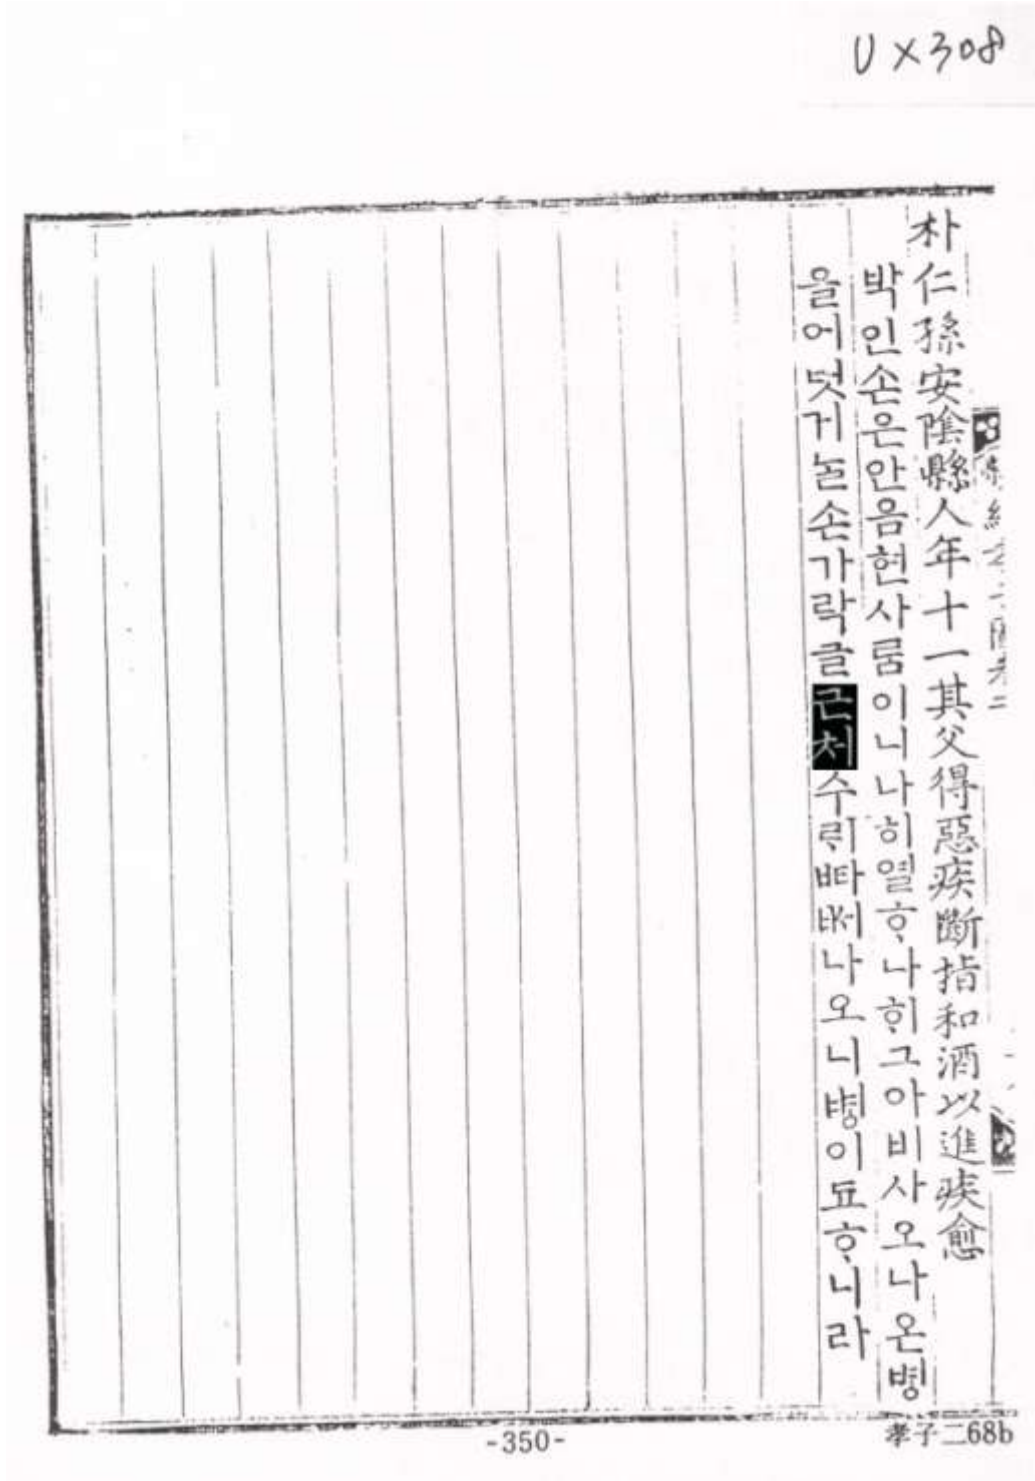 U×308
朴仁孫安陰縣人年十一其父得惡疾斷指和酒以進疾愈
박인손은안음현사ᄅᆞᆷ이니나히열ᄒᆞ나ᄒᆡ그아비사오나온병
을어덧거ᄂᆞᆯ손가락글근처수ᄅᆡᄩᅡᄡᅥ나오니병이됴ᄒᆞ니라
-350-
孝子二68b